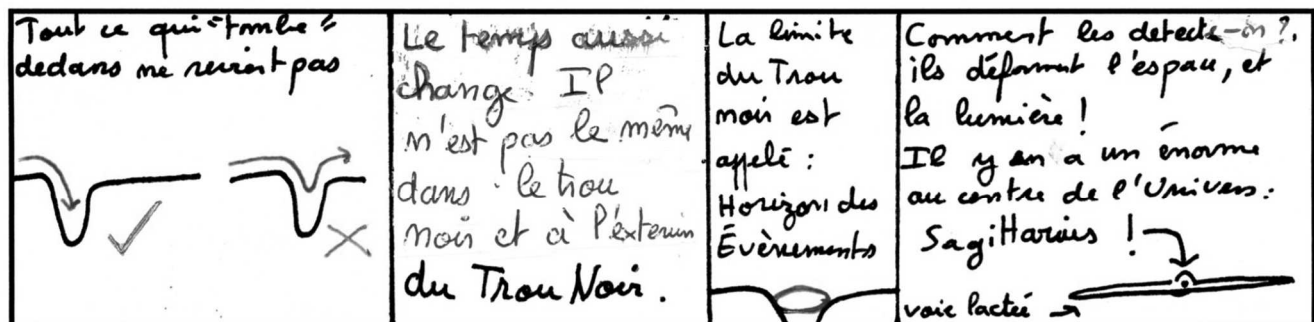 Tout ce qui "tombe"
dedans ne revient pas
Le temps aussi
change. Il
n'est pas le même
dans le trou
noir et à l'extérieur
du Trou Noir.
La limite
du Trou
noir est
appelé :
Horizon des
Évènements
Comment les detecte-on ?.
ils déforment l'espace, et
la lumière !
Il y en a un énorme
au centre de l'Univers :
SagiHarius !
voie lactée